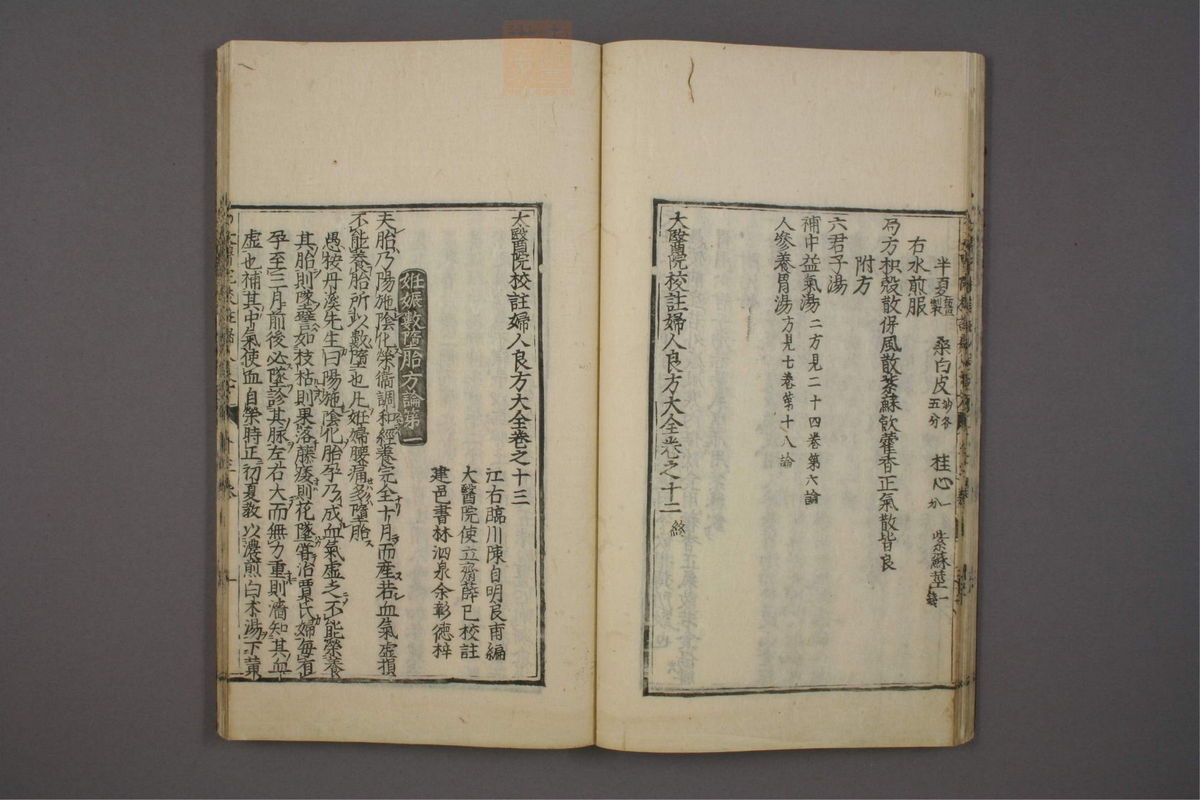 半夏薑製 桑白皮炒各五分 桂心一分 紫蘇莖一錢
右水煎服
局方枳殻散俢風散紫蘇飲藿香正氣散皆良
附方
六君子湯
補中益氣湯二方見二十四卷第六論
人參養胃湯方見七卷第十八論
太醫院校註婦人良方大全卷之十二 終
太醫院校註婦人良方大全卷之十三
江右臨川陳自明良甫編
大醫院使立齋薛已校註
建邑書林泗泉余彰德梓
妊娠數墮胎方論第一
夫胎乃陽施陰化榮衞調和經養完全十月而產若血氣虛損
不能養胎所以數墮也凡妊婦腰痛多墮胎
愚按丹溪先生曰陽施陰化胎孕乃成血氣虛乏不能榮養
其胎則墜譬如枝枯則果落藤痿則花墜甞治賈氏婦毎有
孕至三月前後必墜診其脉左右大而無力重則濇知其血
虛也補其中氣使血自榮時正初夏教以濃煎白朮湯下黃